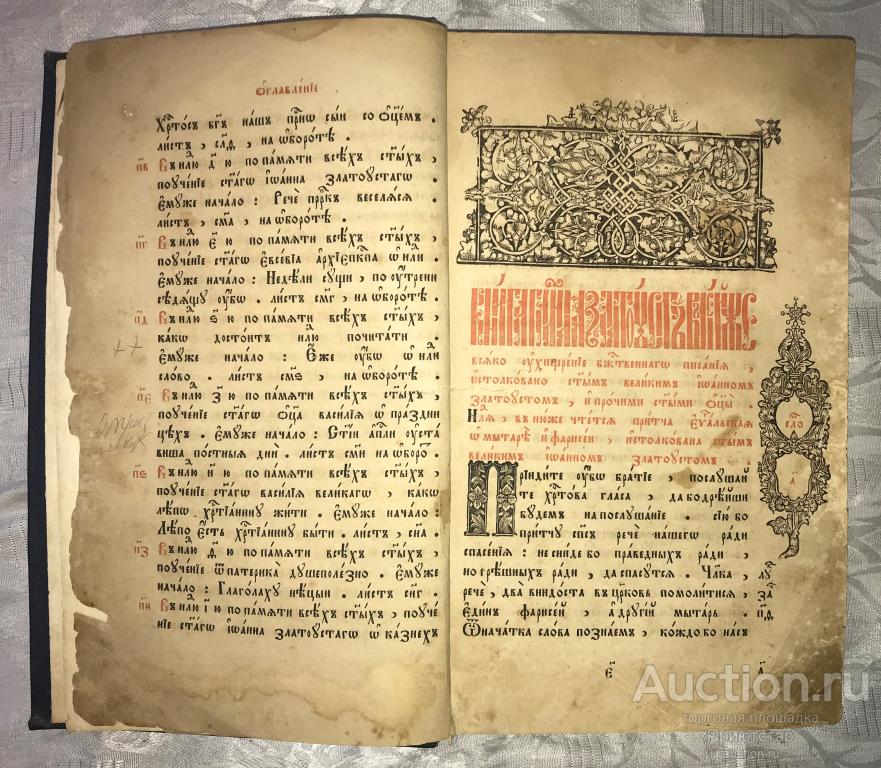 Ѡ҆главле́нїе
Хрⷭ҇то́съ бг҃ъ на́шъ при́снѡ сы́й со ѻ҆ц҃е́мъ .
ли́стъ , сл҃д , на ѡ҆боро́тѣ .
п҃в В̾ нⷣлю д҃ ю по па́мѧти всѣ́хъ ст҃ы́хъ ,
поꙋче́нїе ст҃а́гѡ і҆ѡа́нна златоꙋ́стагѡ
є҆мꙋ́же нача́ло : Речѐ прⷪ҇ро́къ веселѧ́сѧ .
ли́стъ , сма , на ѡ҆боро́тѣ .
п҃г В̾ нⷣлю є҃ ю по па́мѧти всѣ́хъ ст҃ы́хъ ,
поꙋче́нїе ст҃а́гѡ є҆ѵсе́вїа а҆рхїєпⷭ҇кпа ѡ҆ нⷣли .
є҆мꙋ́же нача́ло : Недѣ́ли сꙋ́щи , по оу҆́трени
сѣдѧ́щꙋ оу҆́бѡ . ли́стъ см҃г , на ѡ҆боро́тѣ .
п҃д В̾ нⷣлю ѕ҃ ю по па́мѧти всѣ́хъ ст҃ы́хъ ,
ка́кѡ досто́итъ нⷣлю почита́ти
є҆мꙋ́же нача́ло : Є҆́же оу҆́бѡ ѡ҆ нⷣли
сло́во . ли́стъ см҃ѕ , на ѡ҆боро́тѣ .
п҃є В̾ нⷣлю з҃ ю по па́мѧти всѣ́хъ ст҃ы́хъ ,
поꙋче́нїе ст҃а́гѡ ѻ҆ц҃а̀ васи́лїа ѡ҆ пра́здни
цѣхъ . є҆мꙋ́же нача́ло : Ст҃і́и а҆пⷭ҇ли оу҆ста́
виша по́стныѧ дни̑ . ли́стъ см҃и на ѡ҆боро́ .
п҃ѕ В̾ нⷣлю и҃ ю по па́мѧти всѣ́хъ ст҃ы́хъ ,
поꙋче́нїе ст҃а́гѡ васи́лїа вели́кагѡ , ка́кѡ
лѣ́пѡ хрⷭ҇тїа́нинꙋ жи́ти . є҆мꙋ́же нача́ло :
Лѣ́по є҆́сть хрⷭ҇тїа́нинꙋ бы́ти . ли́стъ , сн҃а .
п҃з В̾ нⷣлю ѳ҃ ю по па́мѧти всѣ́хъ ст҃ы́хъ ,
поꙋче́нїе ѿ патерика̀ дꙋшеполе́зно . є҆мꙋ́же
нача́ло : Глаго́лахꙋ нѣ́цыи . ли́стъ сн҃г .
п҃и В̾ нⷣлю і҃ ю по па́мѧти всѣ́хъ ст҃ы́хъ , поꙋче́
нїе ст҃а́гѡ і҆ѡа́нна златоꙋ́стагѡ ѡ҆ ка́знехъ
всѧ́ко оу҆хищре́нїе бж҃е́ственнагѡ писа́нїѧ ,
и҆столко́вано ст҃ы́мъ вели́кимъ і҆ѡа́нномъ
златоꙋ́стомъ , и҆ про́чими ст҃ы́ми ѻ҆ц҃ы̀ .
Нⷣлѧ , в̾ ню́же чте́тсѧ при́тча є҆ѵⷢ҇льскаѧ
ѡ҆ мытарѣ̀ и҆ фарисе́и , и҆столко́вана ст҃ы́мъ
вели́кимъ і҆ѡа́нномъ златоꙋ́стомъ .
Прїиди́те оу҆́бѡ бра́тїе , послꙋ́шай
те хрⷭ҇то́ва гла́са , да бодрѣ́йши
бꙋ́демъ на послꙋша́нїе . сїю́ бо
при́тчꙋ сп҃съ речѐ на́шегѡ ра́ди
спасе́нїѧ : не сни́де бо пра́ведныхъ ра́ди ,
но грѣ́шныхъ ра́ди , да спасꙋ́тсѧ . Чл҃ка , лꙋ́
речѐ , два̀ внидо́ста в̾ цр҃ковь помоли́тисѧ , за҃
є҆ди́нъ фарисе́й , а҆ дрꙋгі́й мы́тарь . п҃д
Ѿ нача́тка сло́ва позна́ем , ко́ждо бо на́съ
сло
а҃
є҃ а҃
Auction.ru
торговая площадка
Приютстар
auction.ru